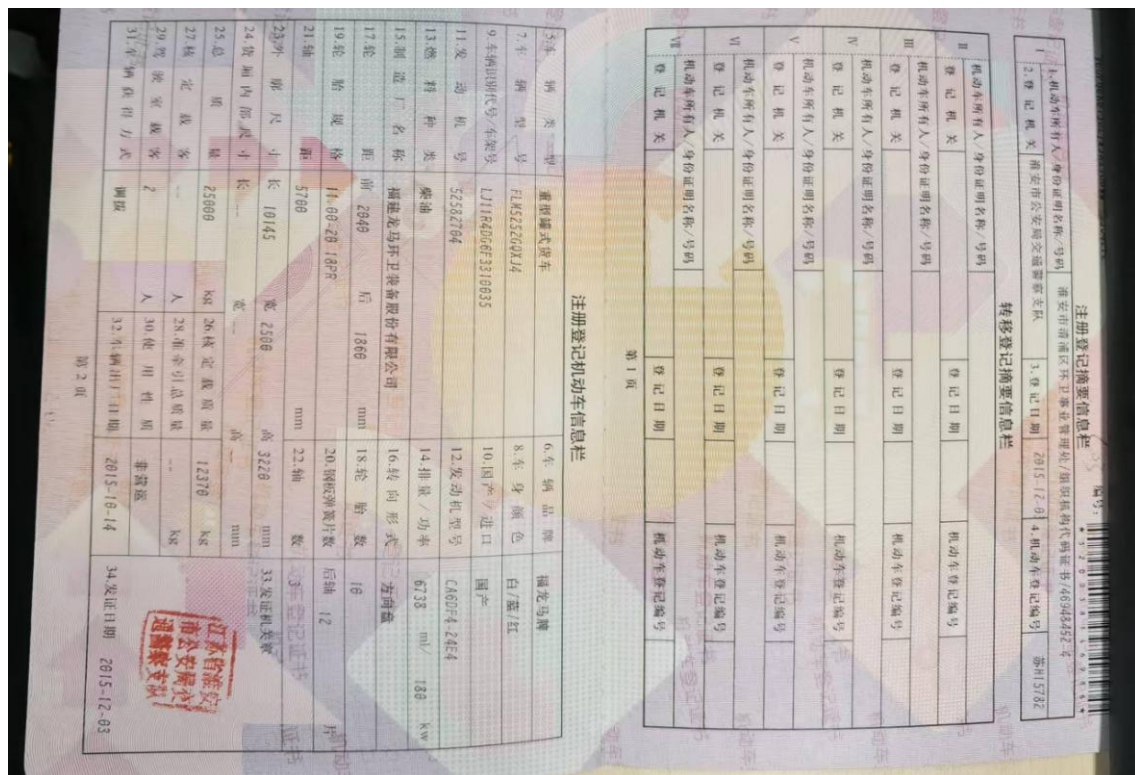 编号:
注册登记摘要信息栏
1 1.机动车所有人/身份证明名称/号码 淮安市清浦区环卫事业管理处/组织机构代码证书/46948452-4
2.登记机关 淮安市公安局交通警察支队 3.登记日期 2015-12-03 4.机动车登记编号 苏H15782
转移登记摘要信息栏
II 机动车所有人/身份证明名称/号码
登记机关 登记日期 机动车登记编号
III 机动车所有人/身份证明名称/号码
登记机关 登记日期 机动车登记编号
IV 机动车所有人/身份证明名称/号码
登记机关 登记日期 机动车登记编号
V 机动车所有人/身份证明名称/号码
登记机关 登记日期 机动车登记编号
VI 机动车所有人/身份证明名称/号码
登记机关 登记日期 机动车登记编号
VII 机动车所有人/身份证明名称/号码
登记机关 登记日期 机动车登记编号
第 1 页
注册登记机动车信息栏
5.车辆类型 重型罐式货车 6.车辆品牌 福龙马牌
7.车辆型号 FLM5252GQXJ4 8.车身颜色 白/蓝/红
9.车辆识别代号/车架号 LJ11R4DG6F3310035 10.国产/进口 国产
11.发动机号 52582704 12.发动机型号 CA6DF4-24E4
13.燃料种类 柴油 14.排量/功率 6738 ml/ 180 kw
15.制造厂名称 福建龙马环卫装备股份有限公司 16.转向形式 方向盘
17.轮距 前 2040 后 1860 mm 18.轮胎数 10
19.轮胎规格 11.00-20 18PR 20.钢板弹簧片数 后轴 12 片
21.轴距 5700 mm 22.轴数 3
23.外廓尺寸 长 10145 宽 2500 高 3220 mm 33.发证机关章
24.货厢内部尺寸 长 -- 宽 -- 高 -- mm
25.总质量 25000 kg 26.核定载质量 12370 kg
27.核定载客 -- 人 28.准牵引总质量 -- kg
29.驾驶室载客 2 人 30.使用性质 非营运
31.车辆获得方式 调拨 32.车辆出厂日期 2015-10-14 34.发证日期 2015-12-03
江苏省淮安
市公安局交
通警察支队
第 2 页